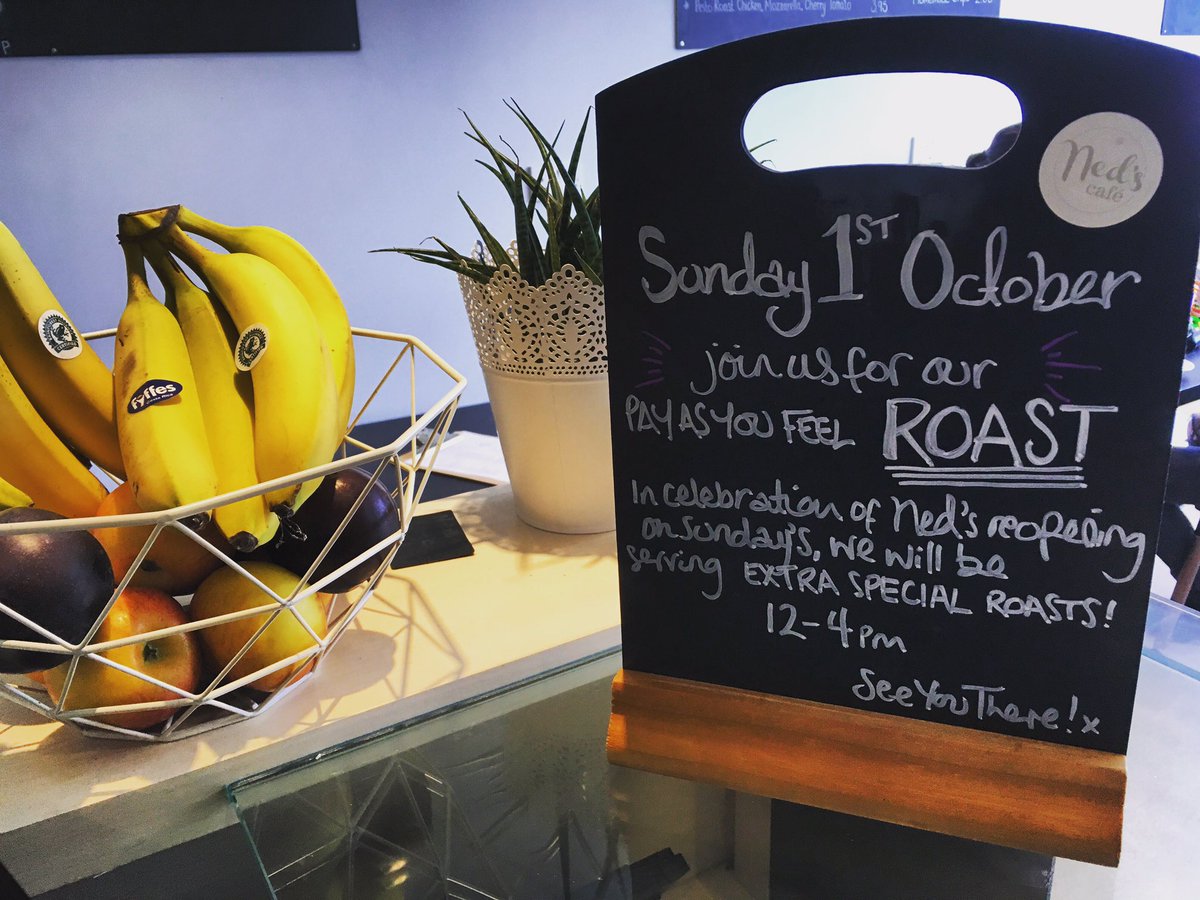 Pesto Roast Chicken, Mozzarella, Cherry Tomato 3.95
P
Ned's
café
Sunday 1ST October
join us for our
PAY AS YOU FEEL ROAST
In celebration of Ned's reopening
on Sunday's, we will be
serving EXTRA SPECIAL ROASTS!
12-4pm
See You There! x
fyffes